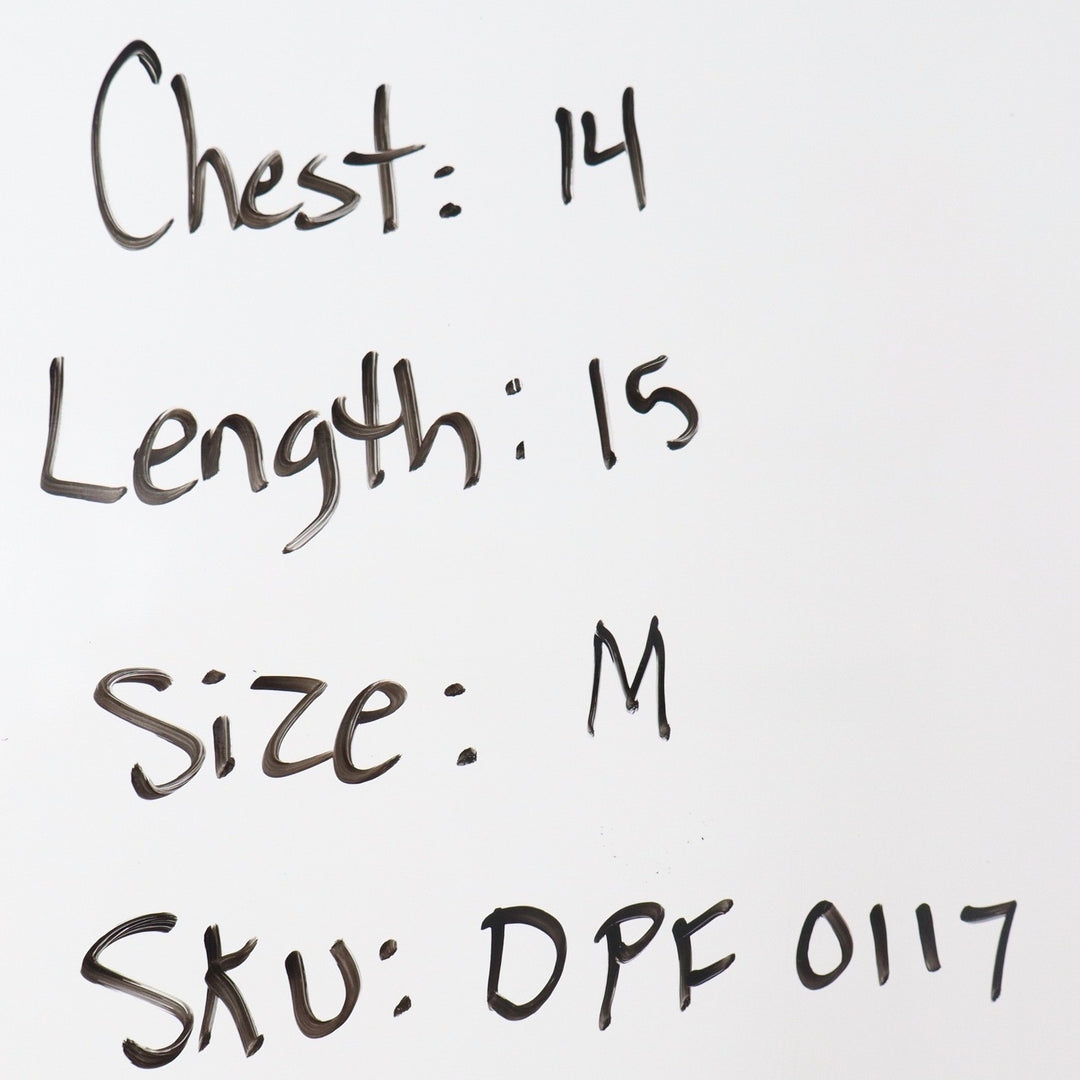 Chest: 14
Length: 15
Size: M
Sku: DPF 0117